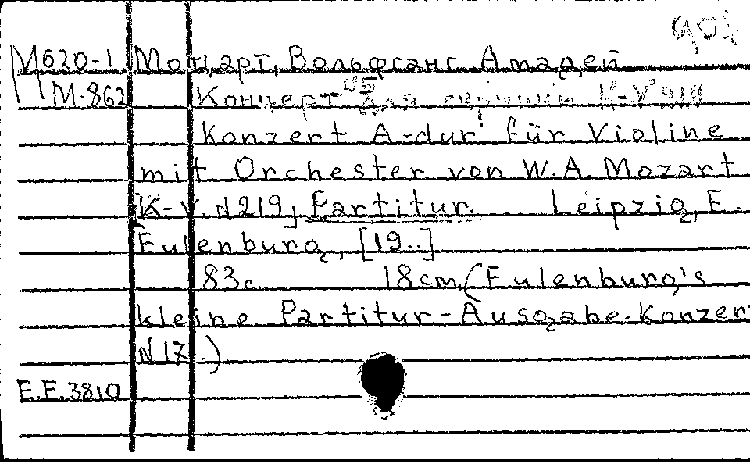 М620-1 Моцарт, Вольфганг Амадей
М-862 Концерт для скрипки K-V 219
Konzert A-dur für Violine
mit Orchester von W.A. Mozart
K-V. N219; Partitur. Leipzig, E.
Eulenburg, [19..]
83c. 18cm. (Eulenburg's
kleine Partitur-Ausgabe. Konzert
N17.)
E.E. 3810